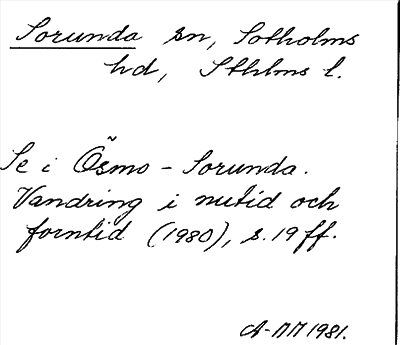 Sorunda sn, Sotholms
hd, Sthlms l.
Se i Ösmo - Sorunda.
Vandring i nutid och
forntid (1980), s. 19 ff.
A-MM 1981.